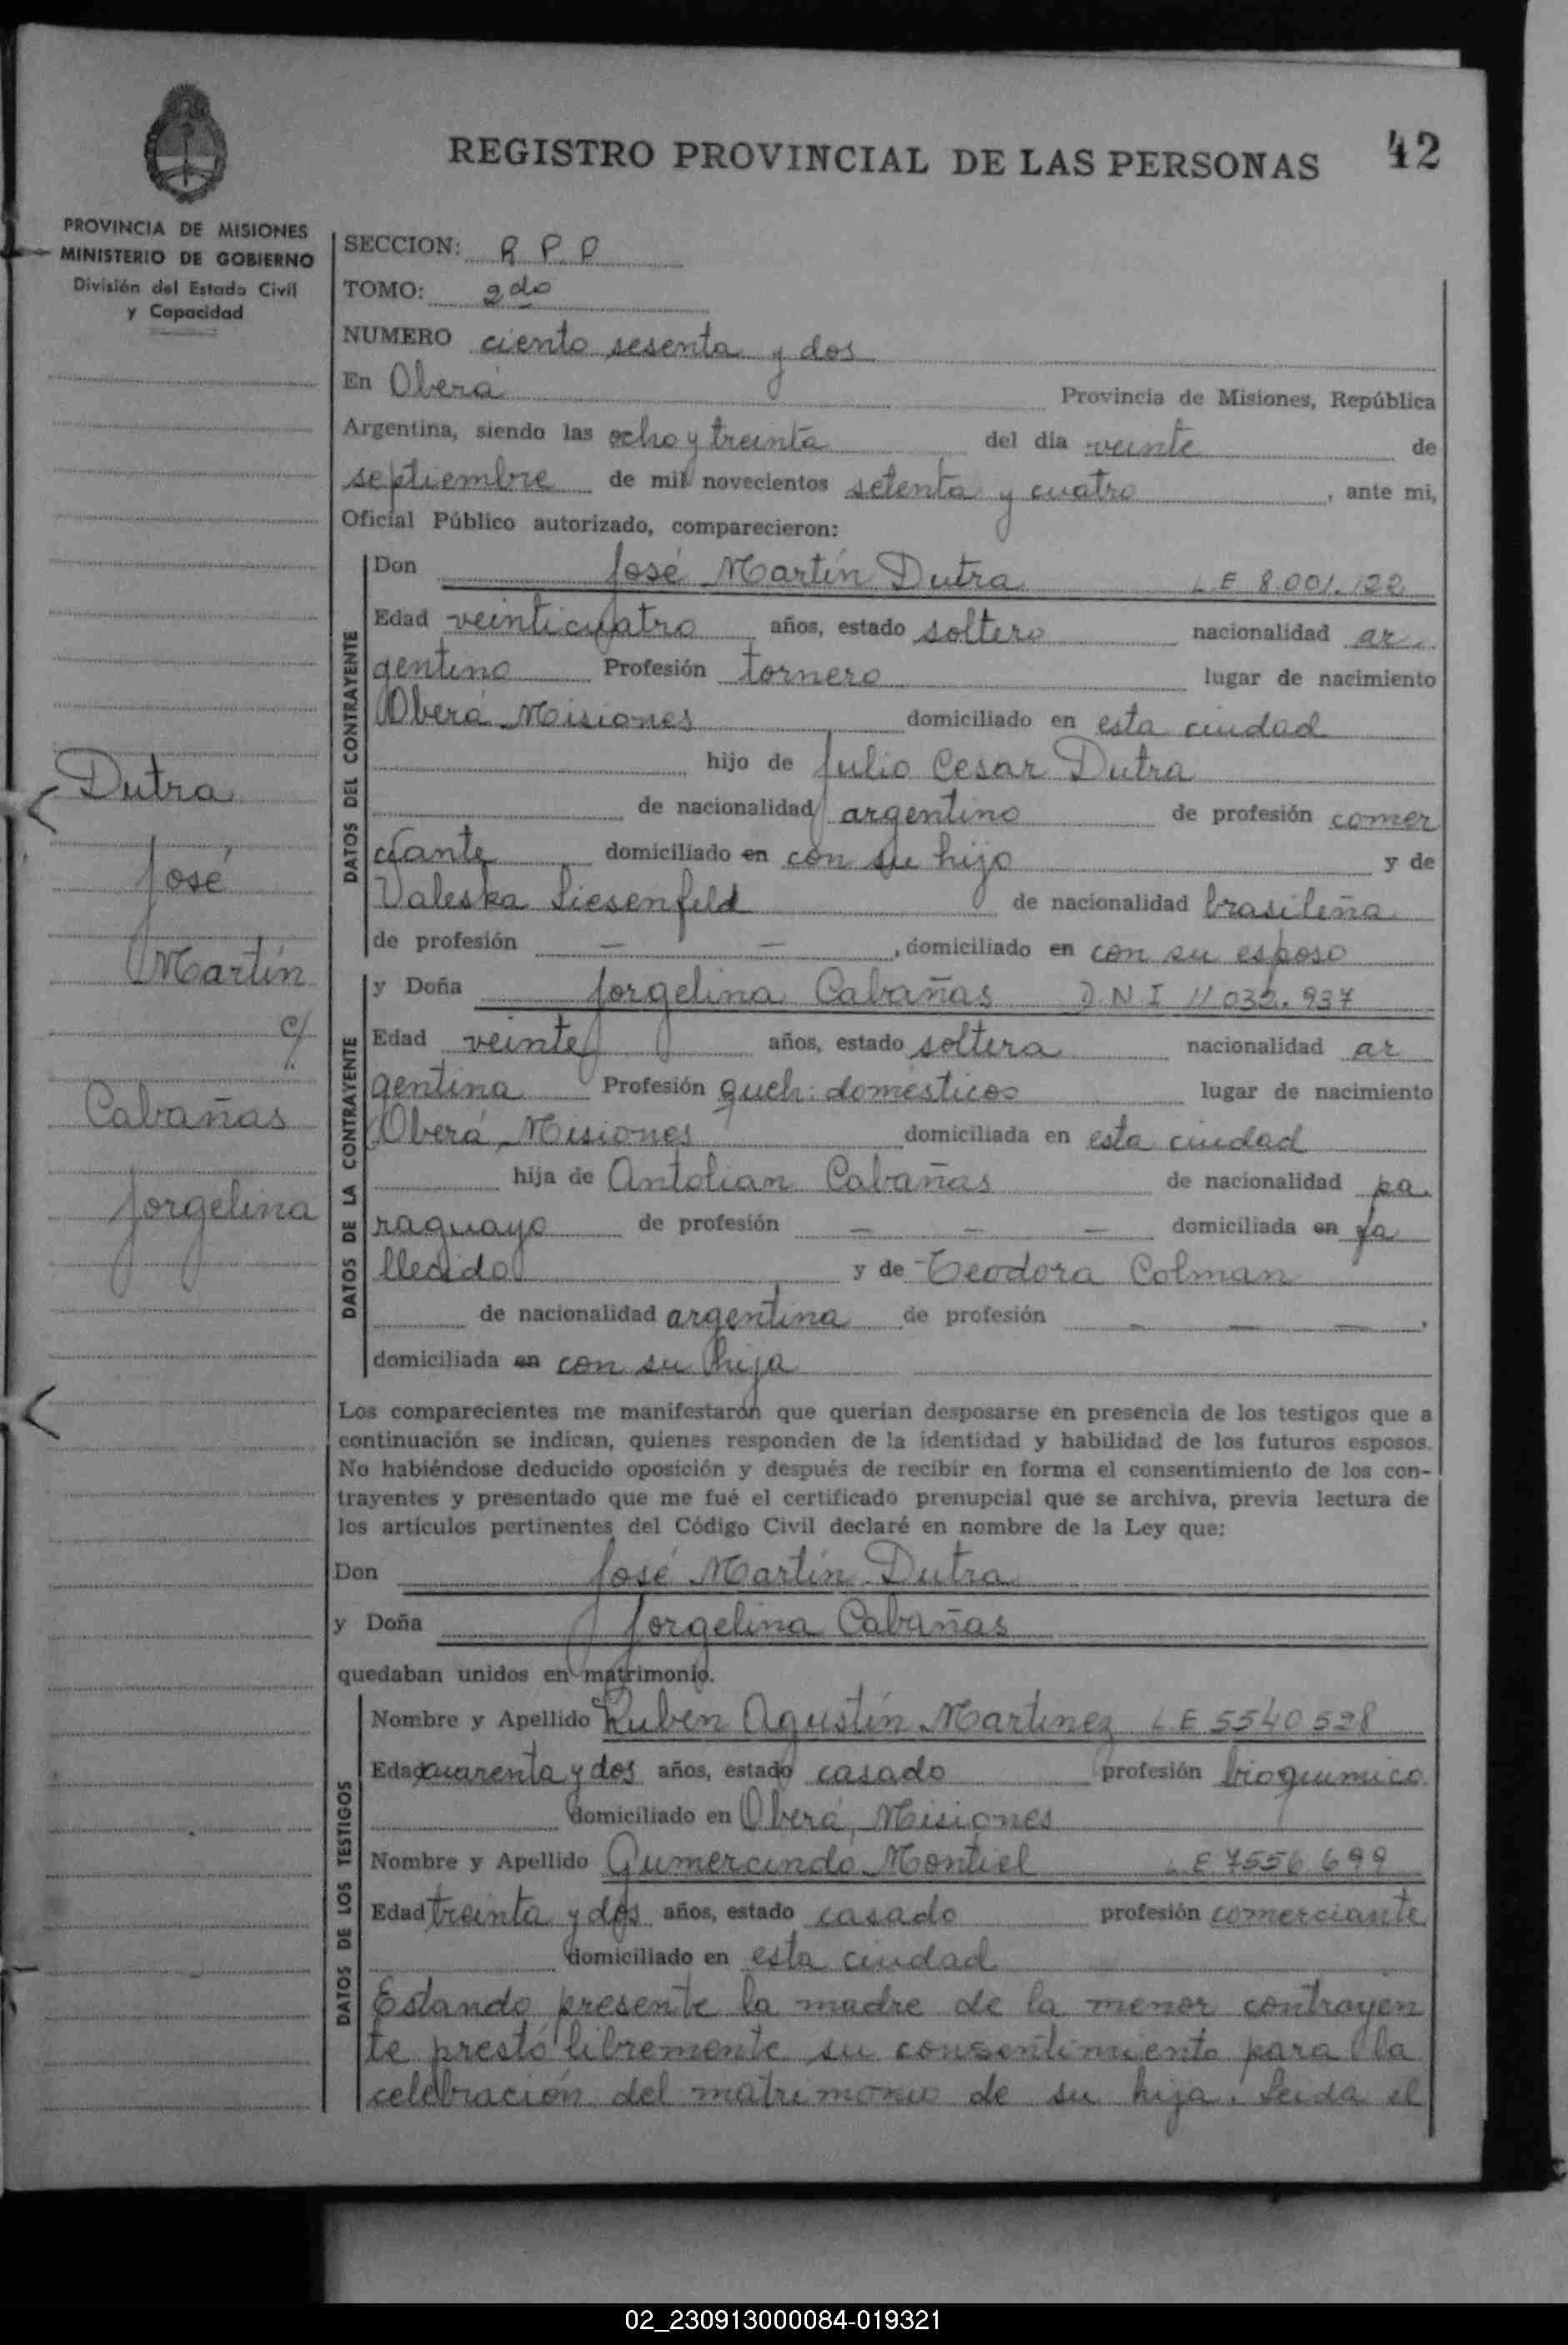 REGISTRO PROVINCIAL DE LAS PERSONAS 42
PROVINCIA DE MISIONES
MINISTERIO DE GOBIERNO
División del Estado Civil
y Capacidad
SECCION: R P P
TOMO: 2do
NUMERO ciento sesenta y dos
En Oberá Provincia de Misiones, República
Argentina, siendo las ocho y treinta del día veinte de
septiembre de mil novecientos setenta y cuatro, ante mi,
Oficial Público autorizado, comparecieron:
DATOS DEL CONTRAYENTE
Don José Martín Dutra L.E 8.001.122
Edad veinticuatro años, estado soltero nacionalidad ar
gentino Profesión tornero lugar de nacimiento
Oberá Misiones domiciliado en esta ciudad
hijo de Julio Cesar Dutra
de nacionalidad argentino de profesión comer
ciante domiciliado en con su hijo y de
Valeska Liesenfeld de nacionalidad brasileña
de profesión — — , domiciliado en con su esposo
Dutra
José
Martín
c/
Cabañas
Jorgelina
DATOS DE LA CONTRAYENTE
y Doña Jorgelina Cabañas D.N I 11 032.937
Edad veinte años, estado soltera nacionalidad ar
gentina Profesión queh. domésticos lugar de nacimiento
Oberá, Misiones domiciliada en esta ciudad
hija de Antolian Cabañas de nacionalidad pa
raguayo de profesión — — — domiciliada en fa
llecido y de Teodora Colman
de nacionalidad argentina de profesión — — — ,
domiciliada en con su hija
Los comparecientes me manifestarón que querían desposarse en presencia de los testigos que a
continuación se indican, quienes responden de la identidad y habilidad de los futuros esposos.
No habiéndose deducido oposición y después de recibir en forma el consentimiento de los con-
trayentes y presentado que me fué el certificado prenupcial que se archiva, previa lectura de
los artículos pertinentes del Código Civil declaré en nombre de la Ley que:
Don José Martín Dutra
y Doña Jorgelina Cabañas
quedaban unidos en matrimonio.
DATOS DE LOS TESTIGOS
Nombre y Apellido Ruben Agustín Martinez L E 5540 528
Edad cuarenta y dos años, estado casado profesión bioquimico
domiciliado en Oberá, Misiones
Nombre y Apellido Gumercindo Montiel L E 7556 699
Edad treinta y dos años, estado casado profesión comerciante
domiciliado en esta ciudad
Estando presente la madre de la menor contrayen
te prestó libremente su consentimiento para la
celebración del matrimonio de su hija. Leida el
02_230913000084-019321